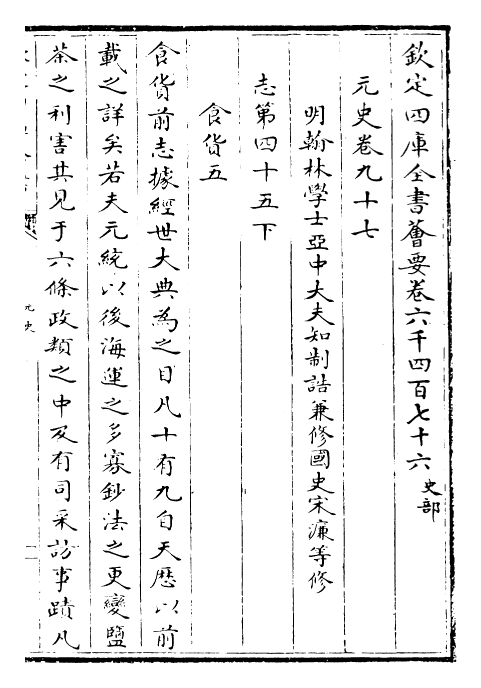 欽定四庫全書薈要卷六千四百七十六 史部
元史卷九十七
明翰林學士亞中大夫知制誥兼修國史宋濂等修
志第四十五下
食貨五
食貨前志據經世大典為之目凡十有九自天厯以前
載之詳矣若夫元統以後海運之多寡鈔法之更變鹽
茶之利害其見于六條政類之中及有司采訪事蹟凡
元史